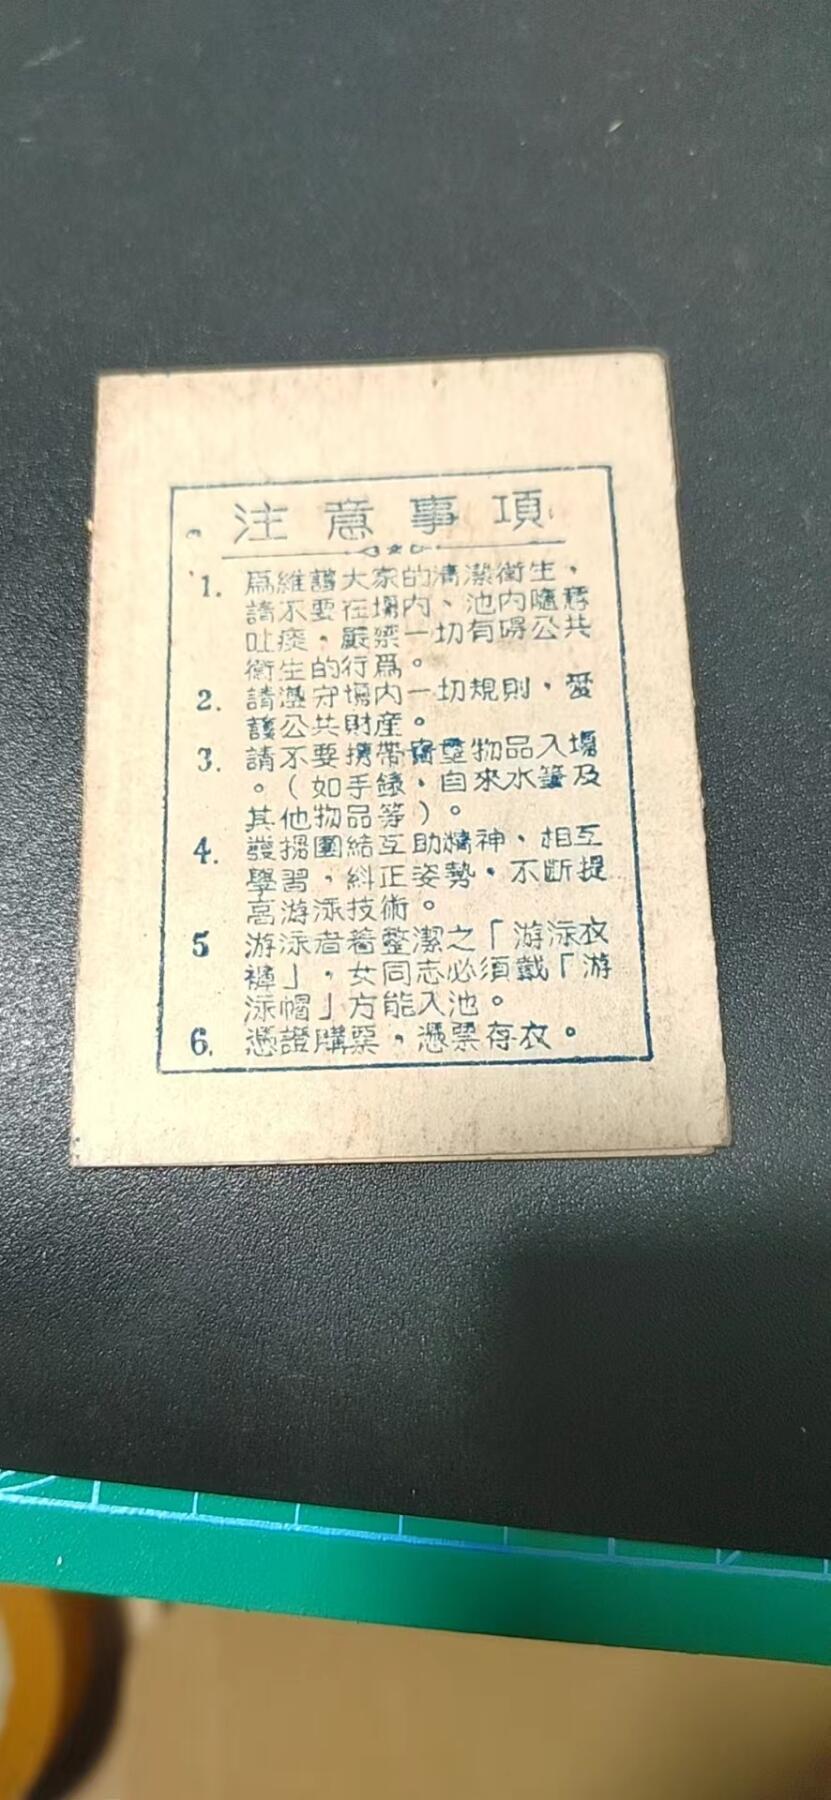 注意事項
1. 爲維護大家的清潔衛生、
請不要在場內、池內隨意
吐痰，嚴禁一切有碍公共
衛生的行爲。
2. 請遵守場內一切規則，愛
護公共財產。
3. 請不要携帶貴重物品入場
。（如手錶，自來水筆及
其他物品等）。
4. 發揚團結互助精神，相互
學習，糾正姿勢，不斷提
高游泳技術。
5 游泳者着整潔之「游泳衣
褲」，女同志必須戴「游
泳帽」方能入池。
6. 憑證購票，憑票存衣。